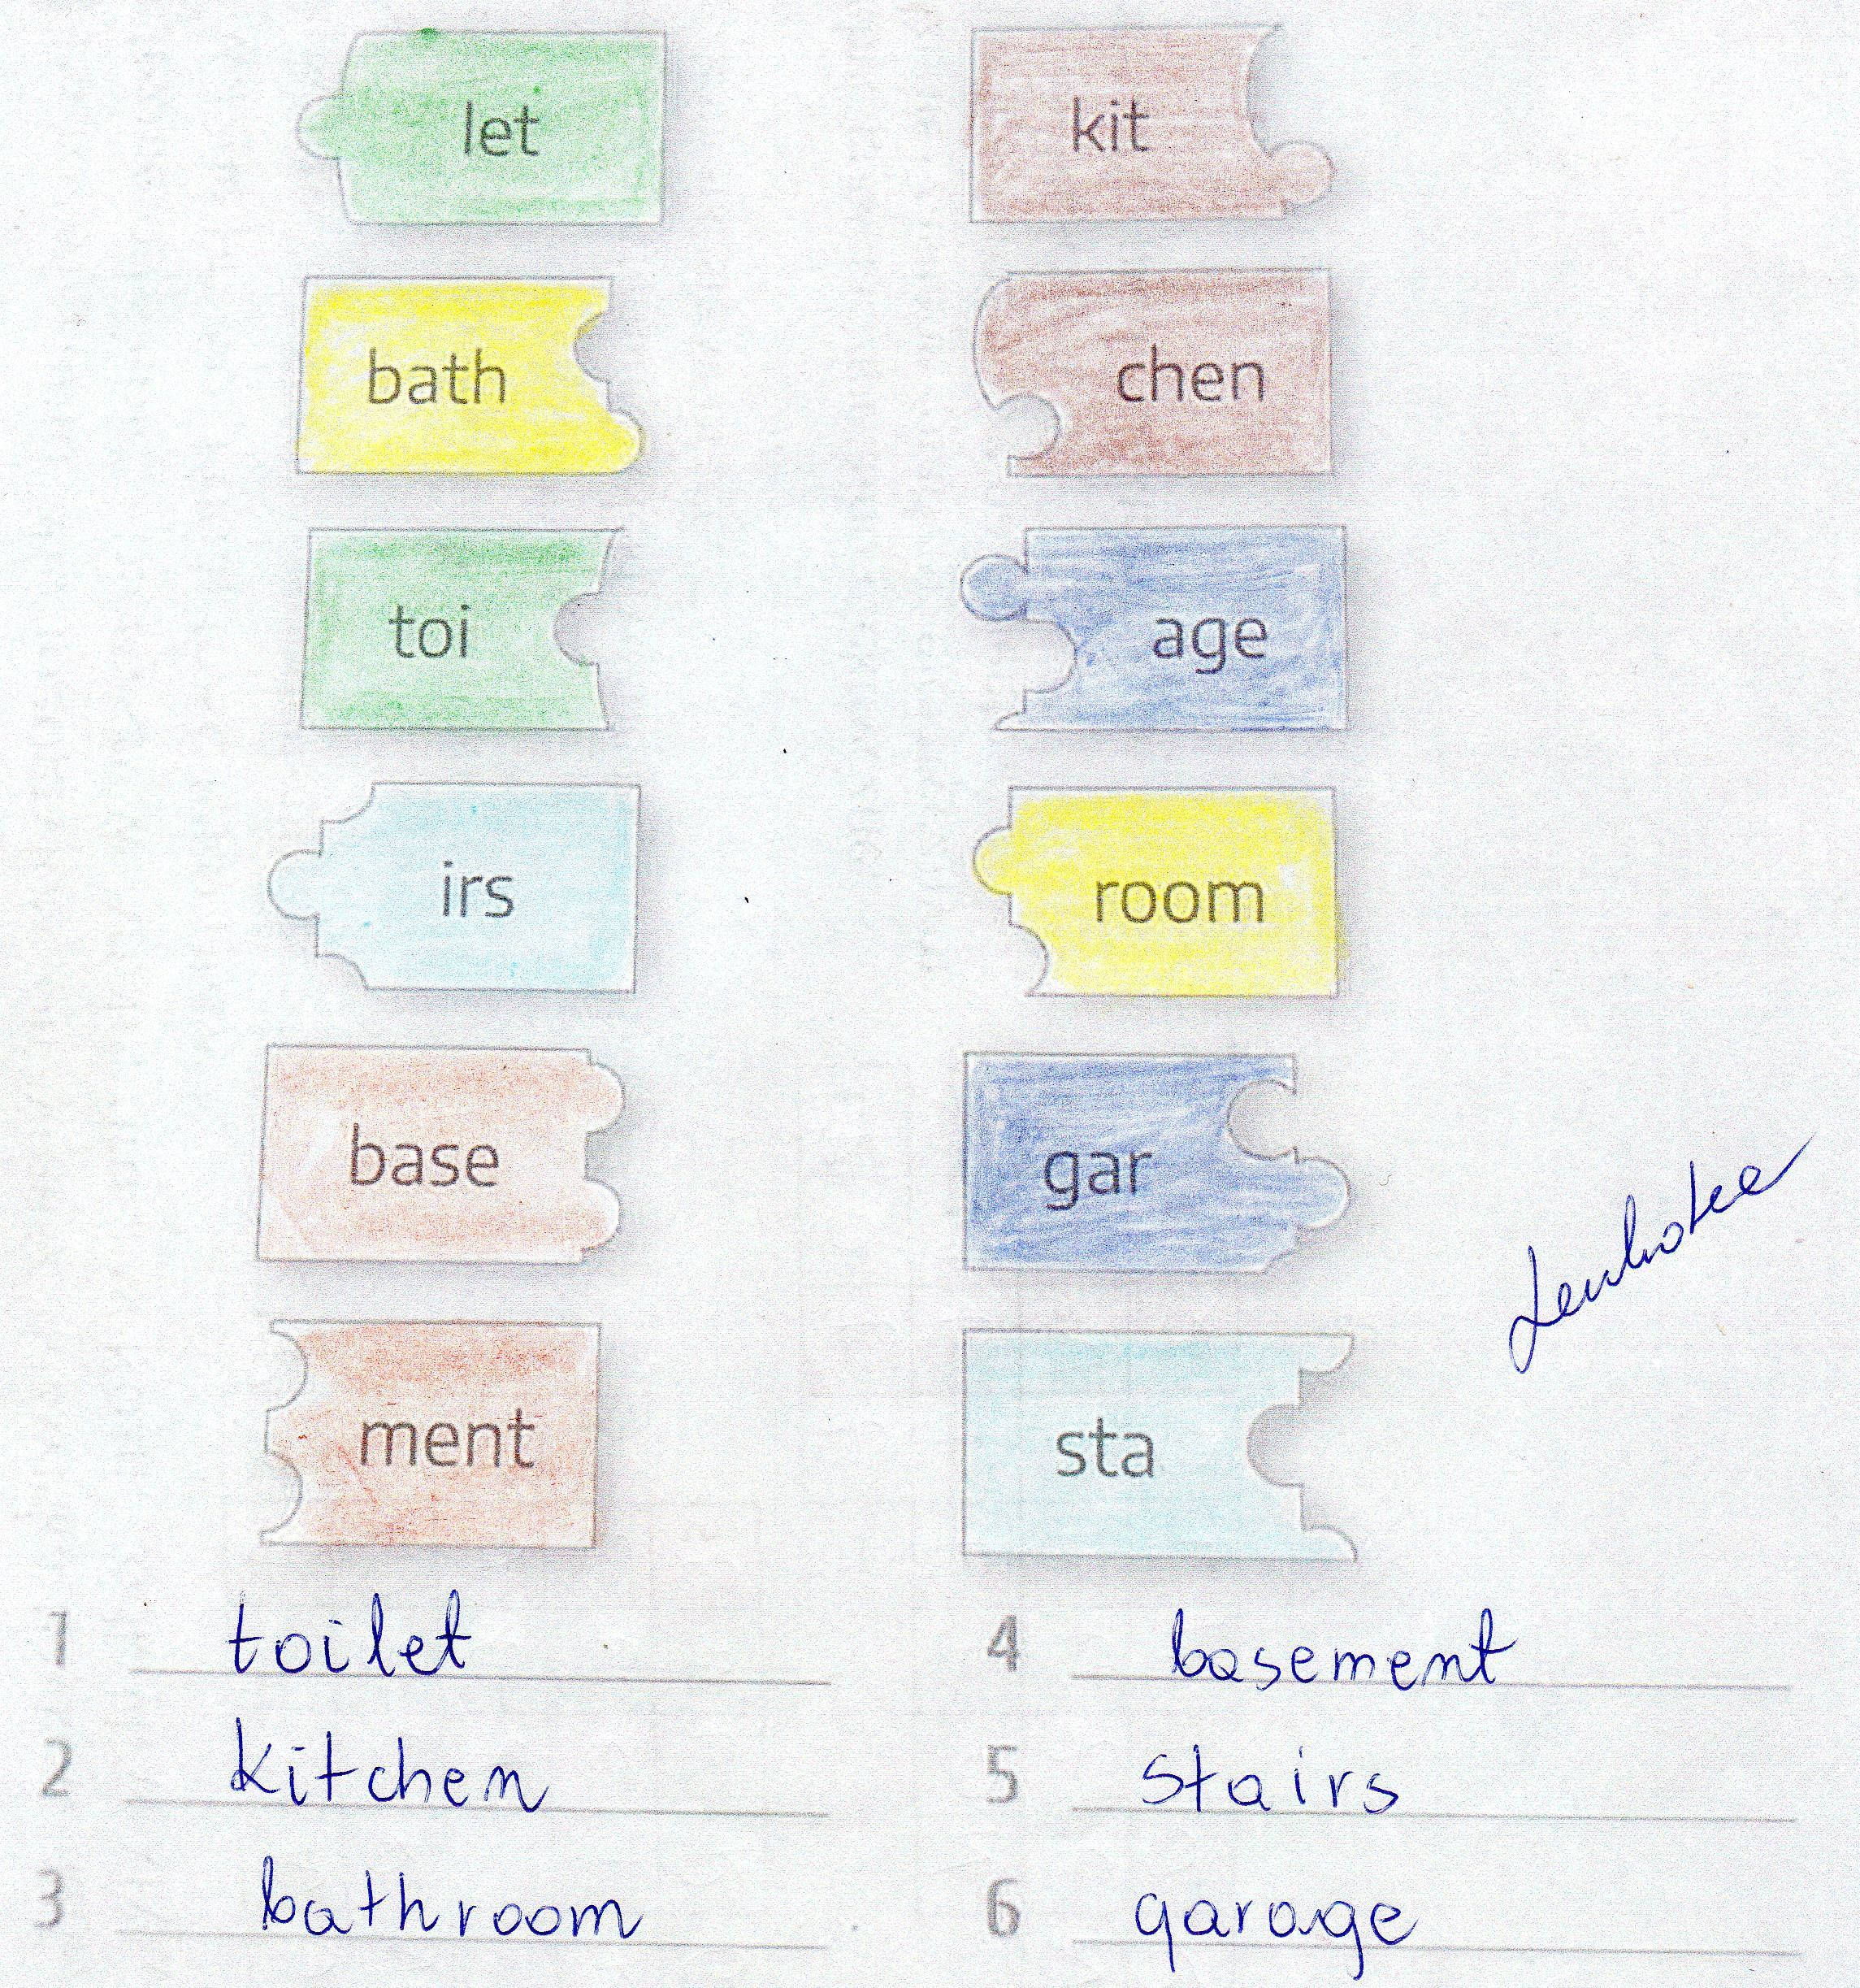 let
kit
bath
chen
toi
age
irs
room
base
gar
ment
sta
1 toilet
2 kitchen
3 bathroom
4 basement
5 stairs
6 garage